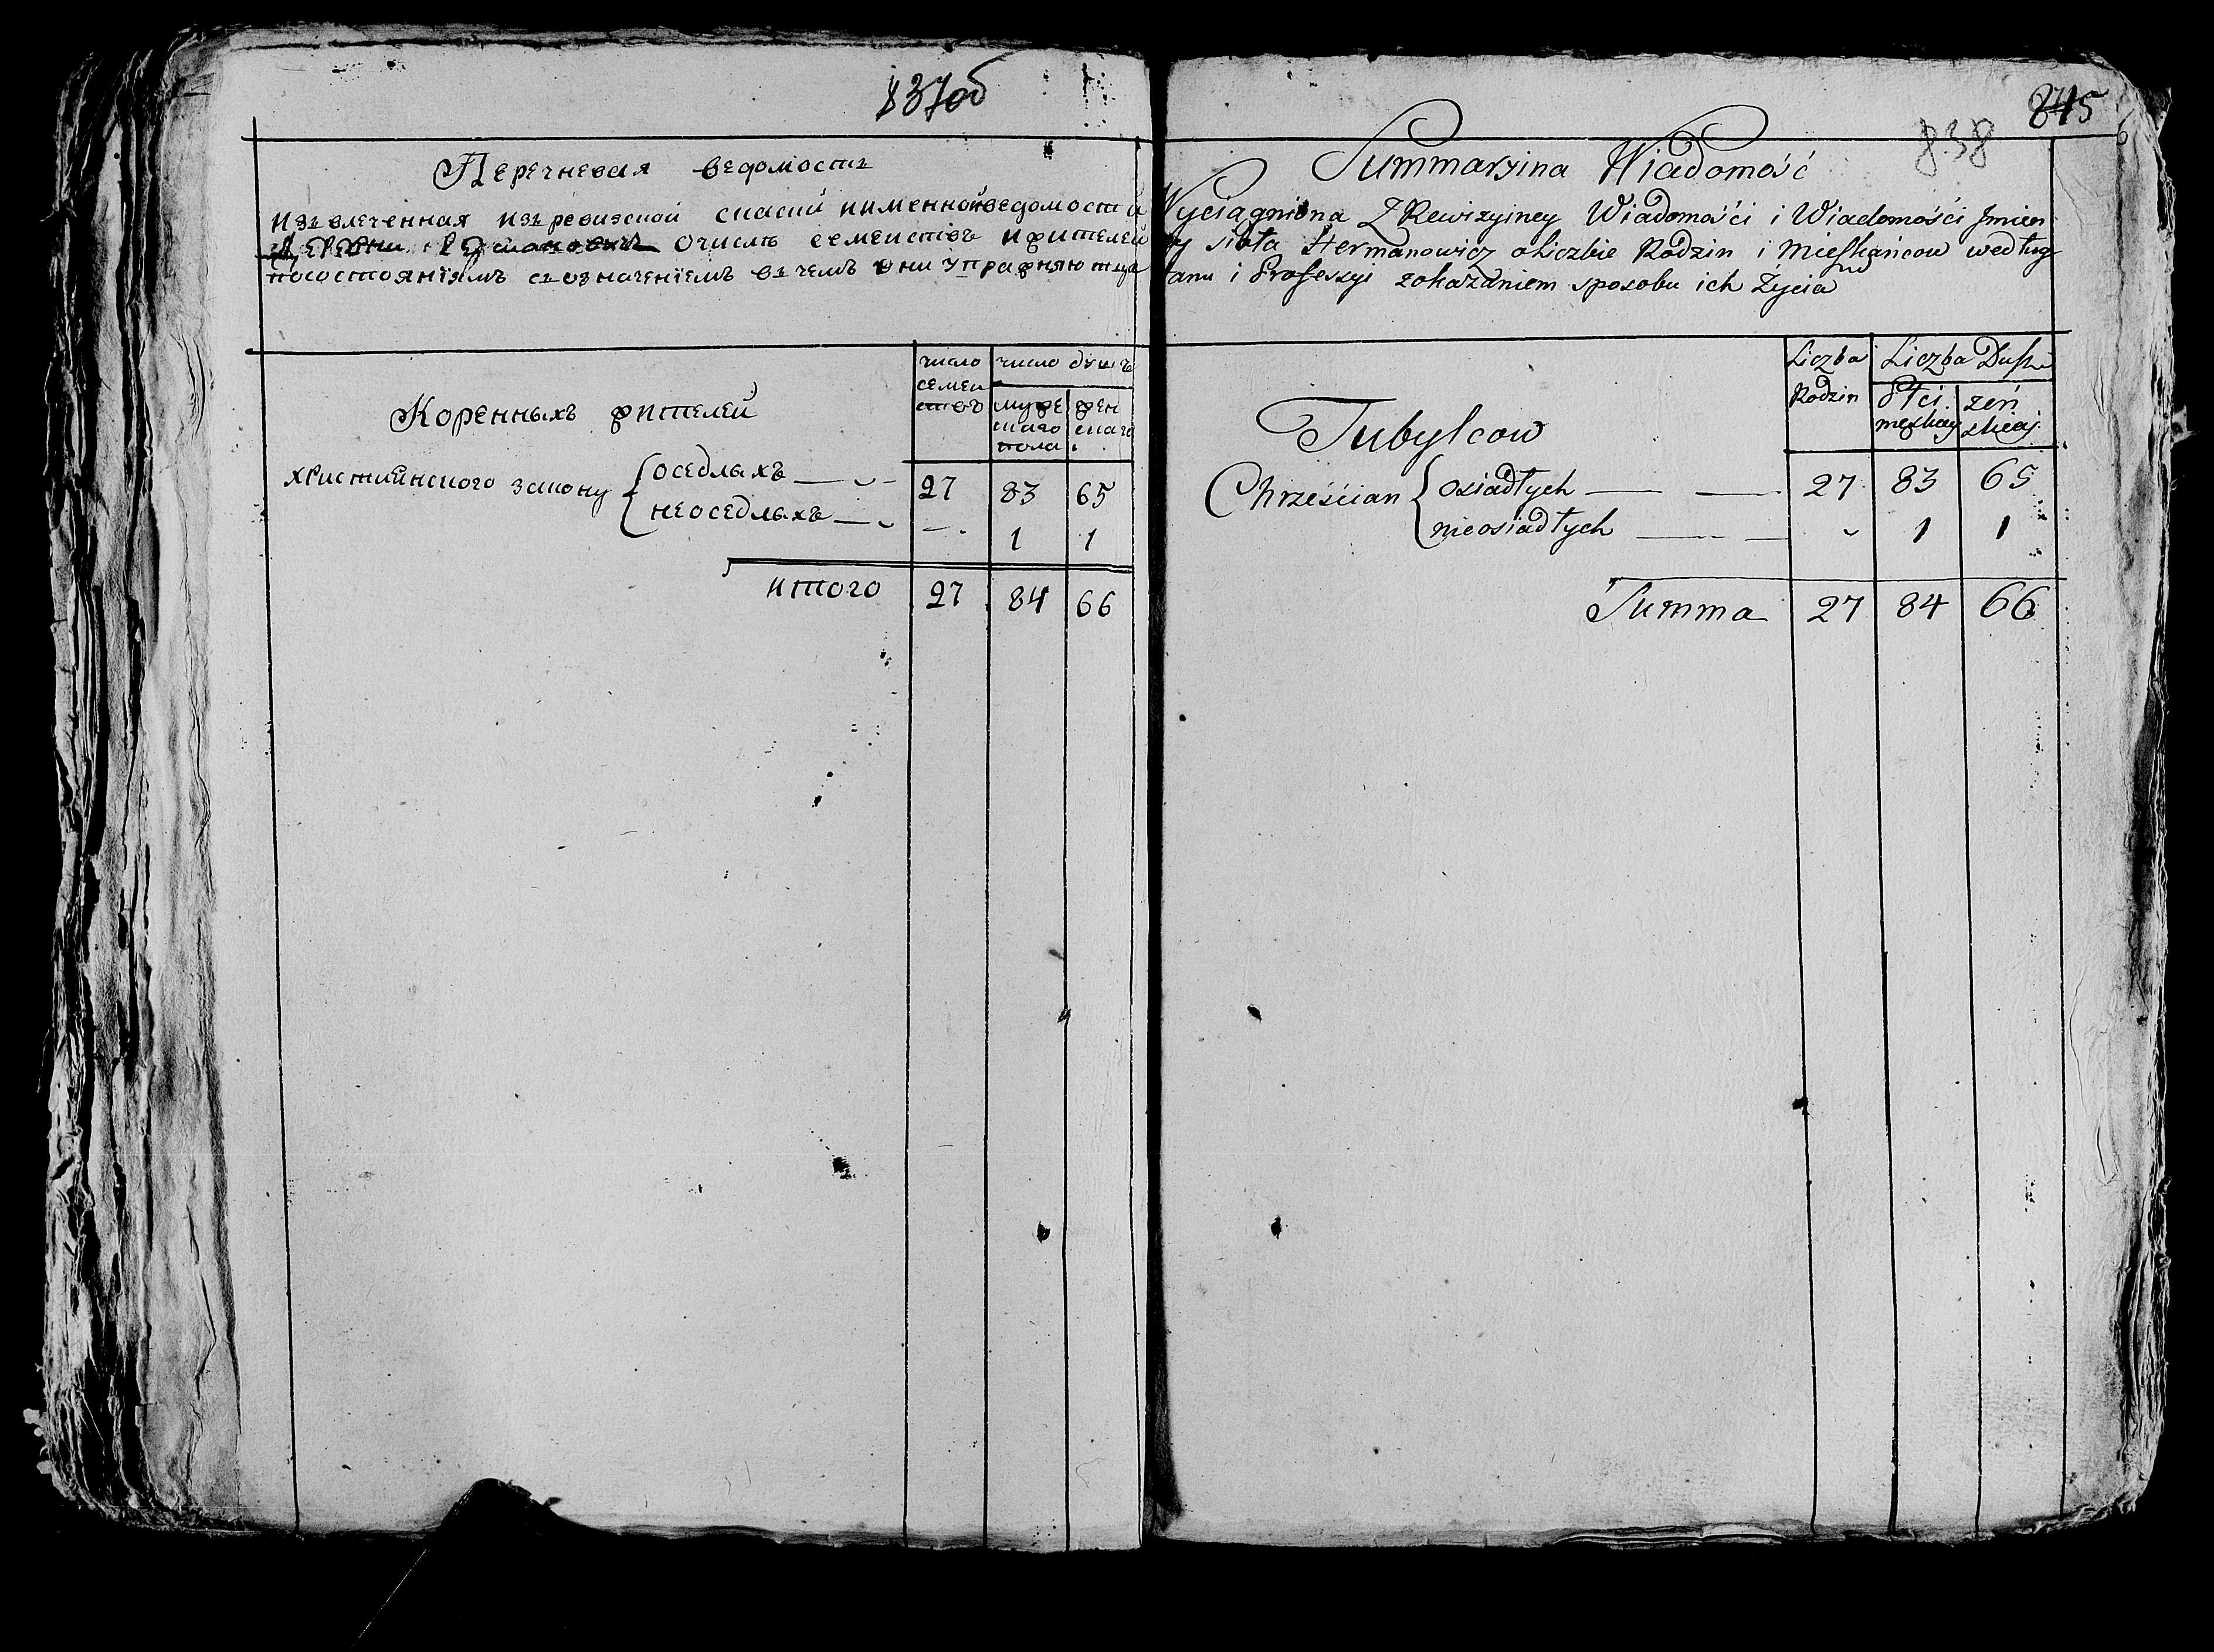 837об
Перечневая ведомость
Изъ влеченная изъ ревизской скаски и именной ведомости
деревни Германовичъ очисле семействъ и жителей
посостояніямъ съ означеніемъ въ чемъ они упражняютца
Коренныхъ жителей
число семействъ
число душъ
мужескаго пола
женскаго
християнского закону { оседлыхъ 27 83 65
неоседлыхъ — 1 1
итого 27 84 66
845
838
Summaryina Wiadomość
Wyciągniona Z Rewizyiney Wiadomości i Wiadomości Jmien
ey sioła Hermanowicz oliczbie Rodzin i Mieszkańcow według
tanu i Professyi zokazaniem sposobu ich Życia
Liczba Rodzin
Liczba Dusz
Płci męskiey
żeńskiey
Tubylcow
Chrześcian { osiadłych 27 83 65
nieosiadłych 1 1
Summa 27 84 66